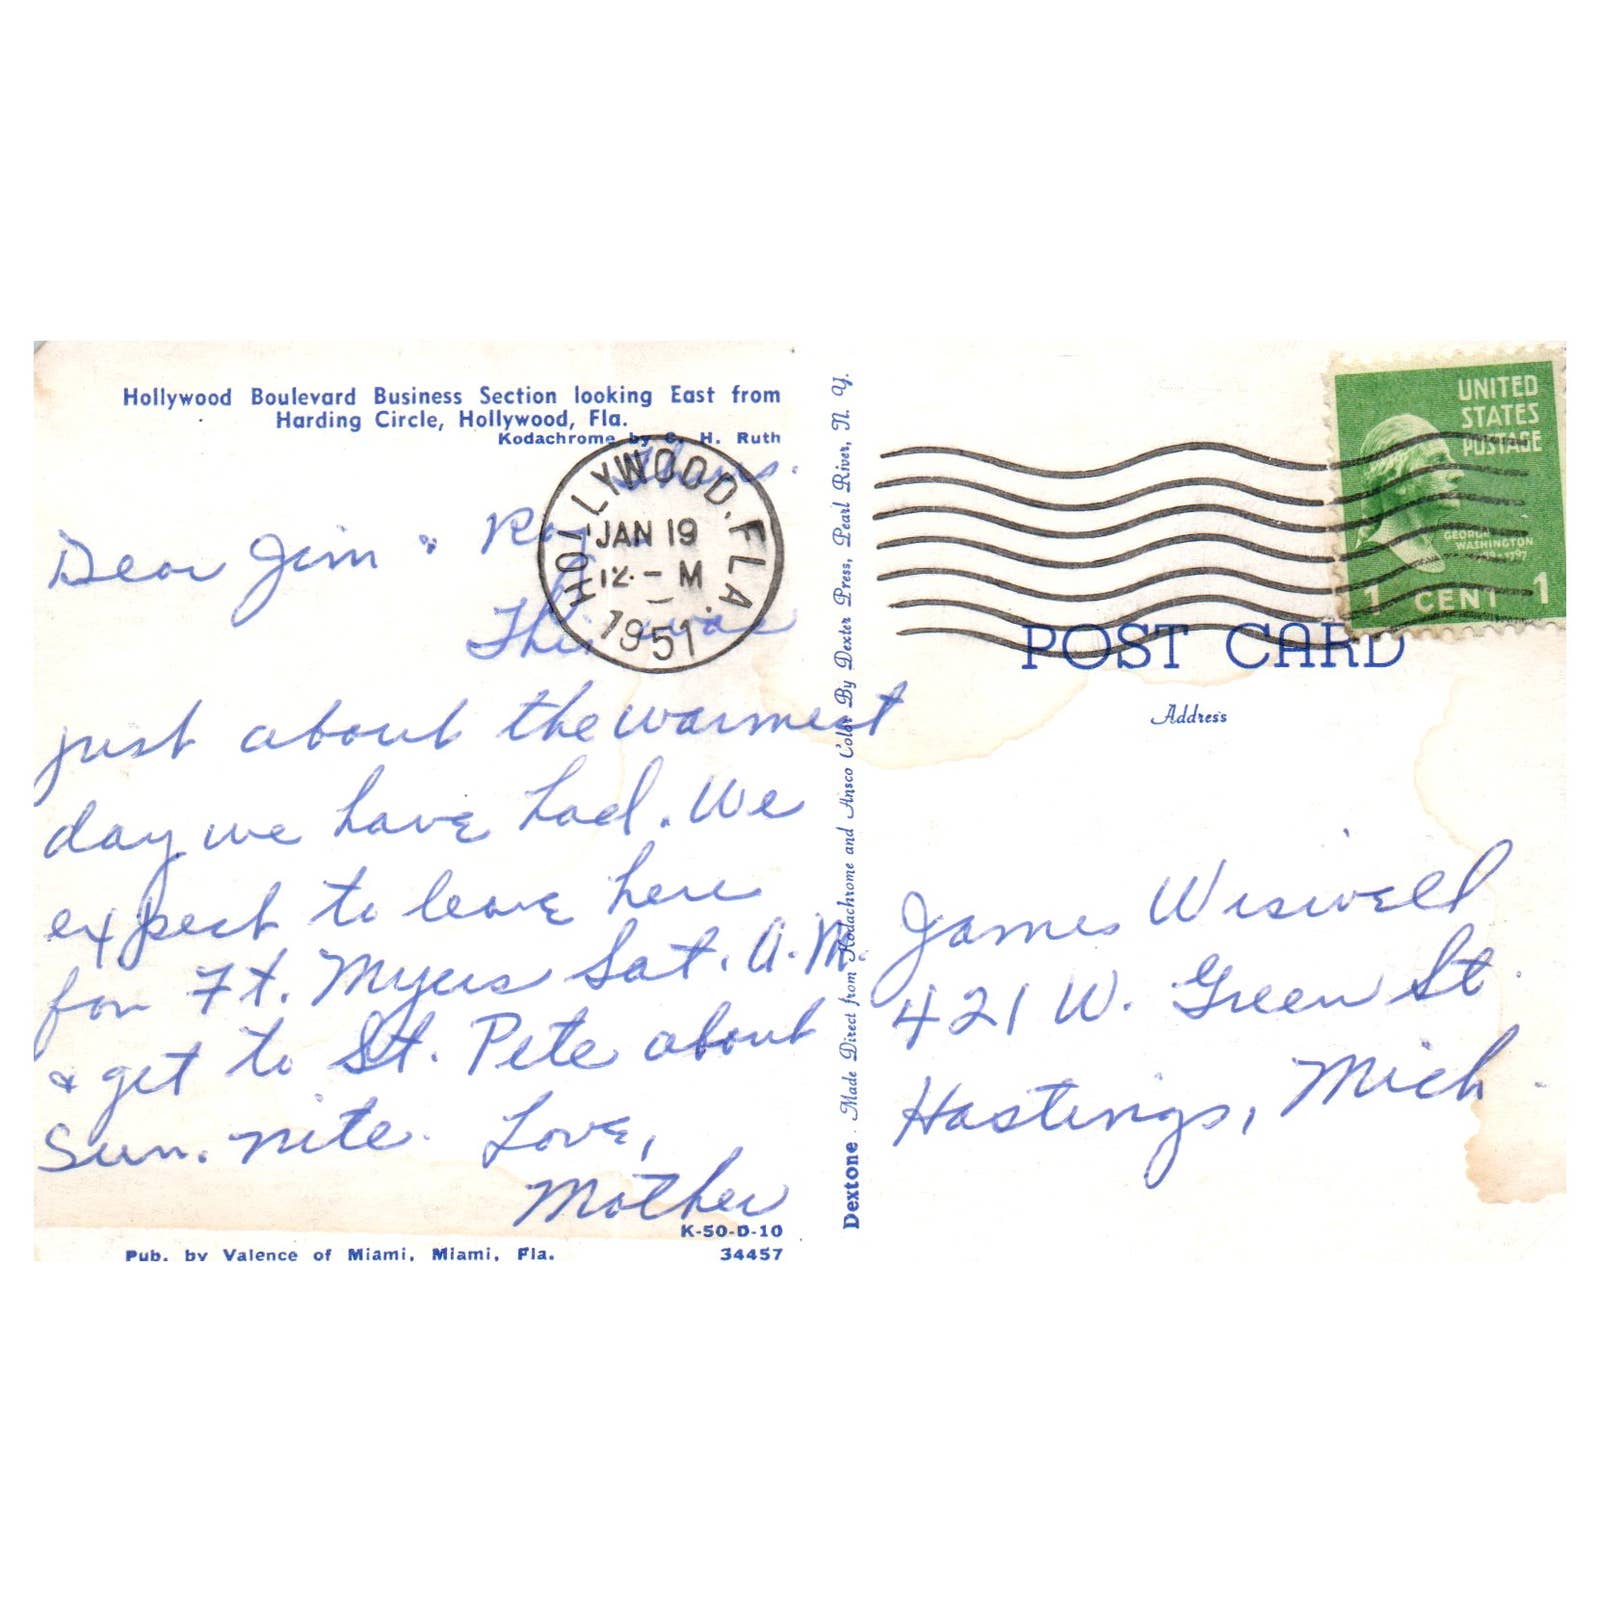 Hollywood Boulevard Business Section looking East from
Harding Circle, Hollywood, Fla.
Kodachrome by C. H. Ruth
Thurs.
Dear Jim &
This was
just about the warmest
day we have had. We
expect to leave here
for Ft. Myers Sat. A.M.
& get to St. Pete about
Sun. nite. Love,
Mother
K-50-D-10
Pub. by Valence of Miami, Miami, Fla.
34457
HOLLYWOOD, FLA.
JAN 19
12 - M
1951
Dextone . Made Direct from Kodachrome and Ansco Color By Dexter Press, Pearl River, N. Y.
UNITED
STATES
POSTAGE
GEORGE
WASHINGTON
1789-1797
1 CENT 1
POST CARD
Address
James Wiswell
421 W. Green St.
Hastings, Mich